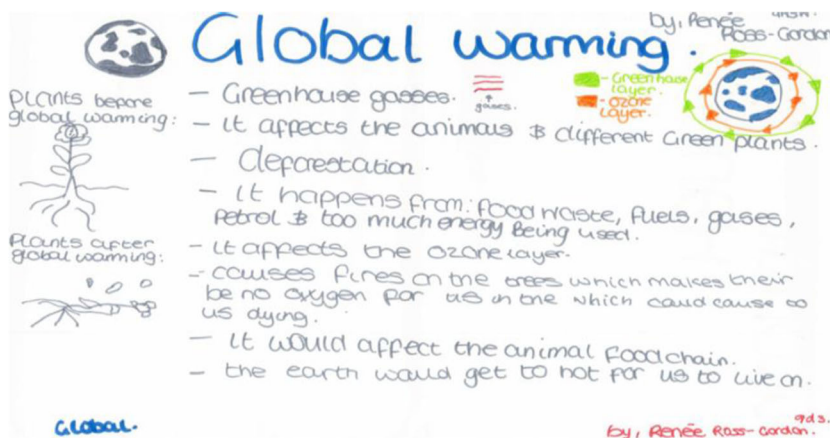 by, Renée
Ross-Gordon
Global warming.
- Greenhouse
layer.
- Ozone
layer.
Plants before
global warming:
- Greenhouse gasses.
gases.
- It affects the animals & different Green plants.
- deforestation.
- It happens from: food waste, fuels, gases,
petrol & too much energy being used.
Plants after
global warming:
- It affects the ozone layer.
- causes fires on the trees which makes their
be no oxygen for us in the which could cause
us dying.
- It would affect the animal foodchain.
- the earth would get to hot for us to live on.
Global.
9ds.
by, Renée Ross-Gordon.